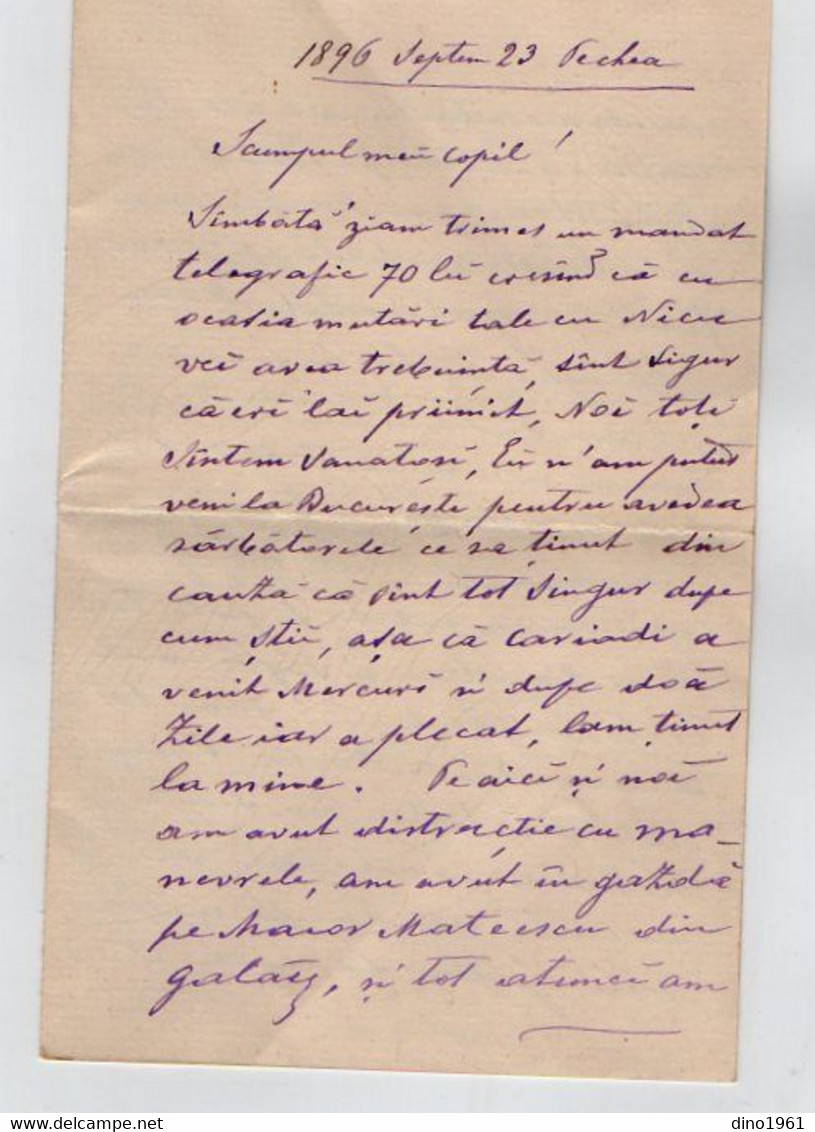 1896 Septem 23 Pechea
Scumpul meŭ copil!
Sîmbătă ziam trimes un mandat
telegrafic 70 leĭ cresînd că cu
ocasia mutări tale cu Nicu
veĭ avea trebuință, sînt sigur
că erĭ laĭ priimit, Noĭ toțĭ
sîntem sanatosĭ, Eŭ n'am putut
veni la Bucureștĭ pentru avedea
sărbătorele ce sa ținut din
cauză că sînt tot singur dupe
cum știĭ, așa că cariadi a
venit Mercurĭ și dupe doă
zile iar a plecat, lam ținut
la mine. Pe aicĭ și noĭ
am avut distracție cu ma_
nevrele, am avut în gazdă
pe Maior Mateescu din
galațĭ, și tot atuncĭ am
dino1961